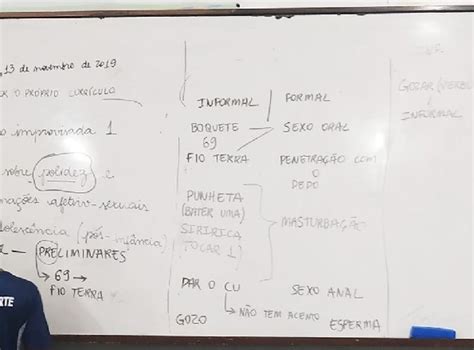 , 13 de novembro de 2019
O PRÓPRIO CURRÍCULO
improvisada 1
sobre polidez e
afetivo-sexuais
(pós-infância)
PRELIMINARES
→ 69 →
FIO TERRA
INFORMAL / FORMAL
BOQUETE — SEXO ORAL
69
FIO TERRA PENETRAÇÃO COM
O
DEDO
PUNHETA
(BATER UMA)
SIRIRICA
(TOCAR 1)
MASTURBAÇÃO
DAR O CU SEXO ANAL
→ NÃO TEM ACENTO
GOZO ESPERMA
GOZAR (VERBO)
INFORMAL
RTE